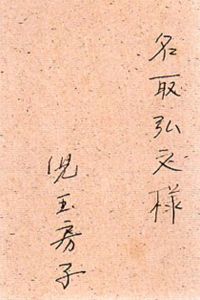 名取弘文様
児玉房子